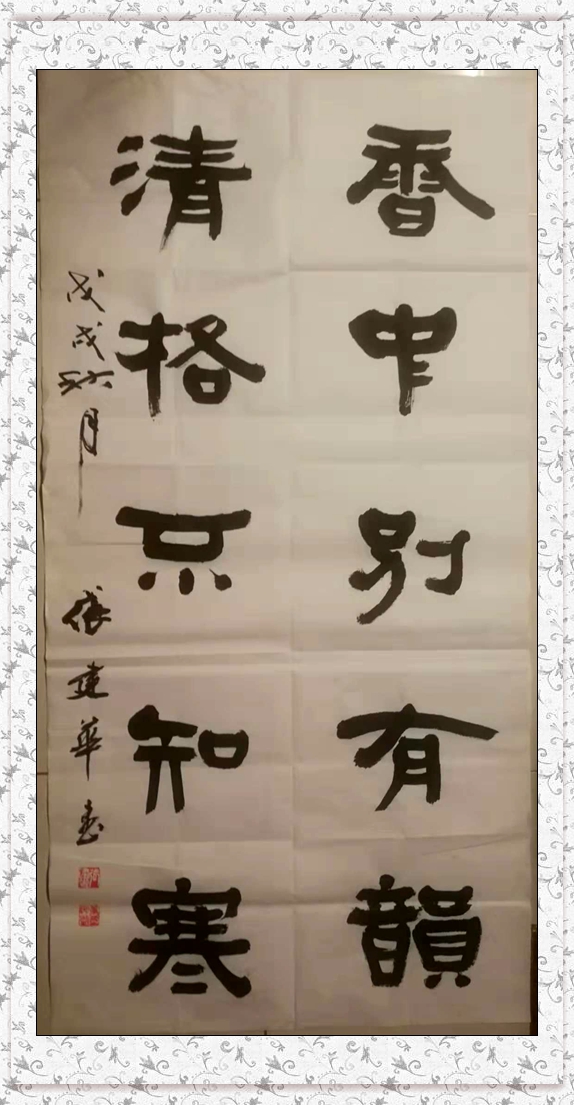 香中別有韻
清格不知寒
戊戌秋月 張建華書